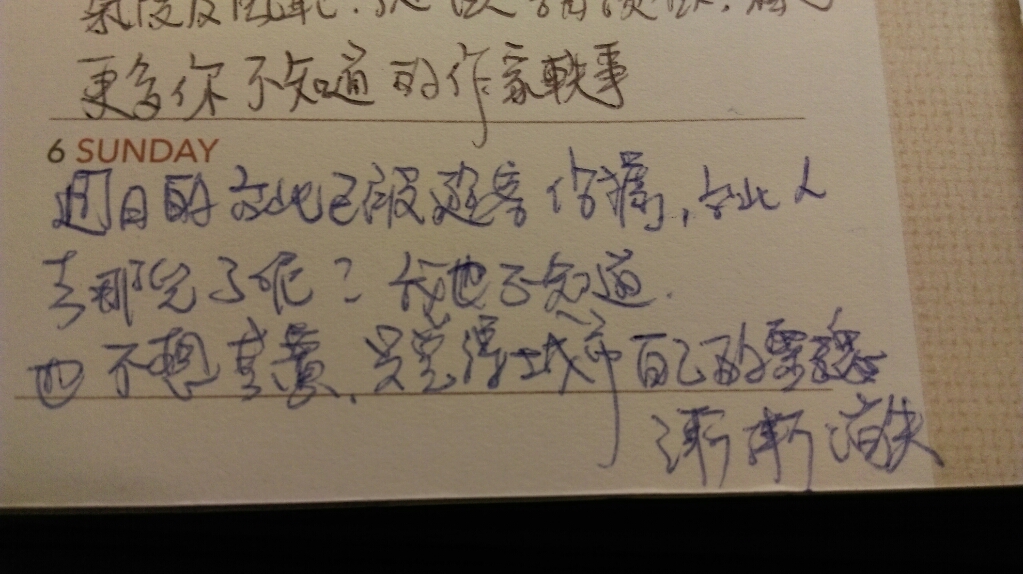 更多你不知道的作家軼事
6 SUNDAY
週日的台北已被遊客佔據，台北人
去那兒了呢？我也不知道.
也不想其實，只覺得城市自己的靈魂
漸漸消失